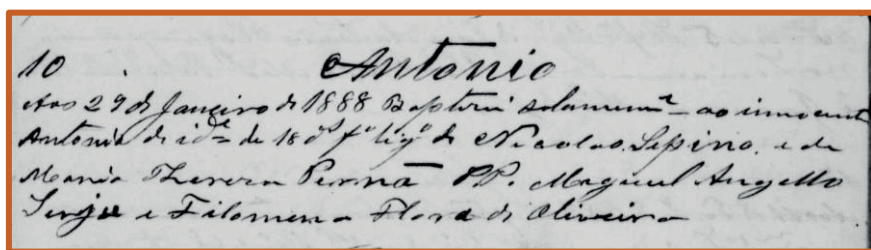 10 Antonio
Aos 29 de Janeiro de 1888 Baptisei solemnemte ao innocente
Antonio de ide de 18 ds fo ligo de Nicolao Sepino e de
Maria Thereza Perná PP. Miguel Angello
e Filomena Flora de Oliveira